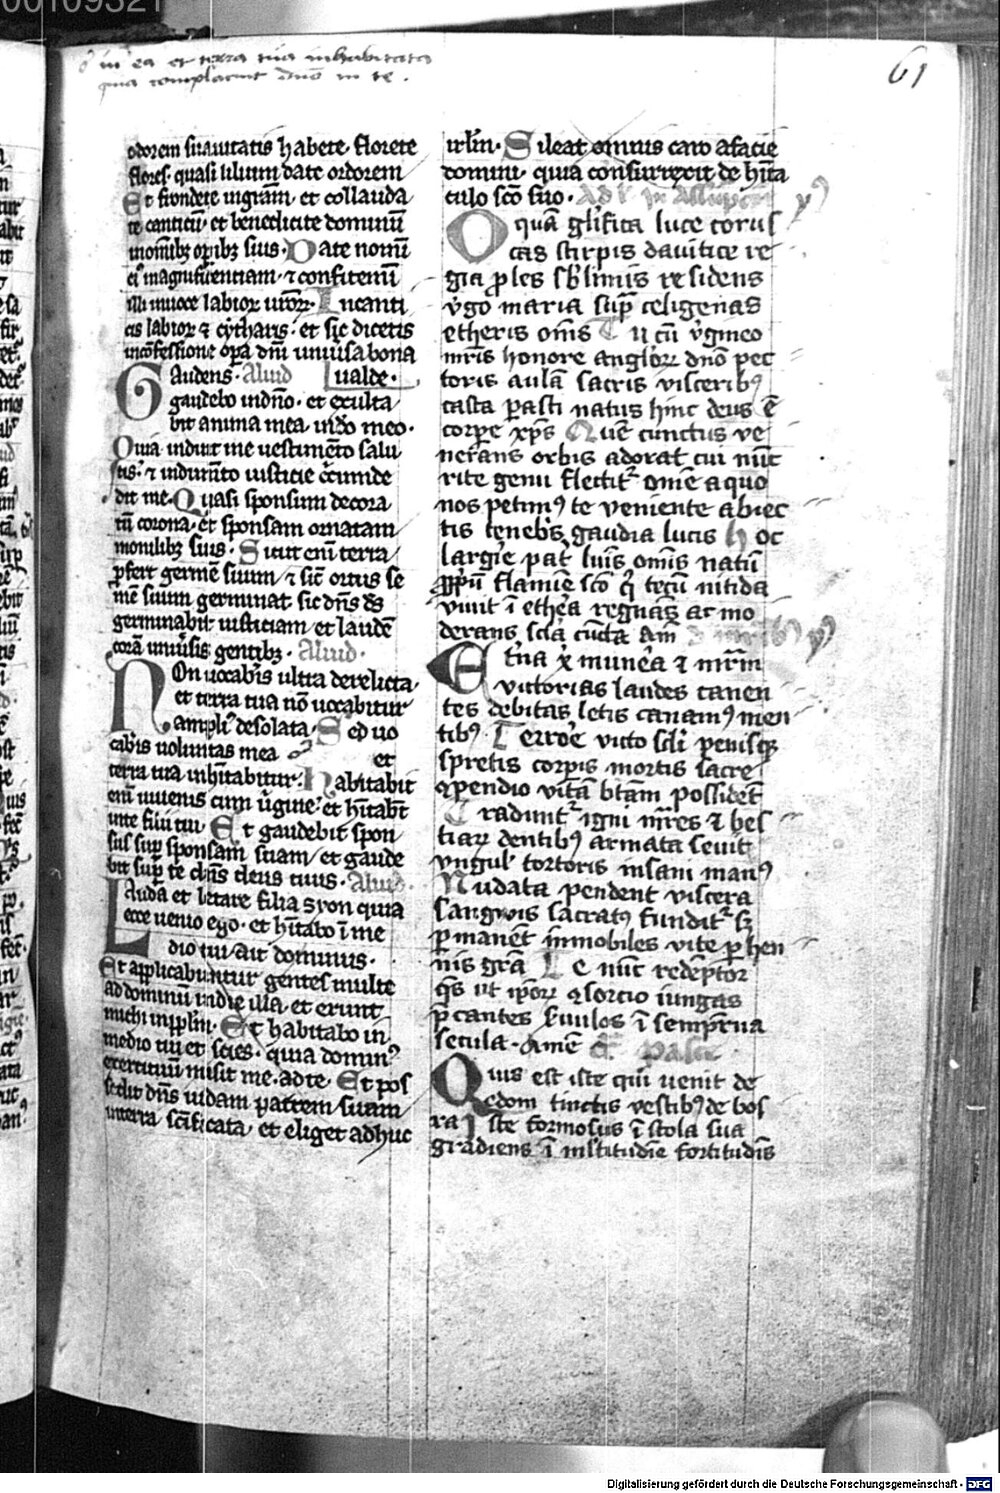 00109321
in ea et terra tua inhabitata
quia complacuit dno in te .
61
odorem suauitatis habete. florete
flores. quasi lilium date odorem
Et frondete ingram. et collauda
te canticū. et benedicite dominū
inomībz opībz suis. Date nomī
ei magnificentiam. ⁊ confitemī
illi inuoce labior uroꝝ. Incanti
cis labior ⁊ cytharis. et sic dicetis
inconfessione opa dnī uniusa bona
Gaudens. Aliud ualde.
gaudebo indno. et exulta
bit anima mea indo meo.
Quia induit me uestimēto salu
tis. ⁊ indumto iusticie cīcumde
dit me. Quasi sponsum decora
tū corona. et sponsam ornatam
monilibz suis. Sicut enī terra
ꝓfert germē suum ⁊ sic ortus se
mē suum germinat sic dns ds
germinabit iusticiam et laudē
corā uniusis gentibz. Aliud.
Non uocabis ultra derelicta.
et terra tua nō uocabitur
ampliꝰ desolata. Sed uo
cabis uoluntas mea et
terra tua inhitabitur. habitabit
enī iuuenis cum ugine. et hitabt
inte filii tui. Et gaudebit spon
sus sup sponsam suam et gaude
bit sup te dns deus tuus. Aliud.
Lauda et letare filia syon quia
ecce uenio ego. et hitabo ī me
dio tui ait dominus.
Et applicabuntur gentes multe
ad dominū indie illa. et erunt
michi inpplm. Et habitabo in
medio tui et scies. quia dominꝰ
exercituū misit me. ad te. Et pos
sedit dns iudam partem suam
interra scificata. et eliget adhuc
irlm. Sileat omnis caro afacie
domini. quia consurrexit de hita
culo sco suo. Ad in Assumpt
O quā glifica luce corus
cas stirpis dauitice re
gia ꝓles sblimis residens
vgo maria supͣ celigenas
etheris omīs Tu cū vgineo
mris honore angloꝝ dno pec
toris aulā sacris visceribꝰ
casta parasti natus hinc deus ē
corpe xps Quē cunctus ve
nerans orbis adorat cui nūc
rite genu flectitͬ omē a quo
nos petimꝰ te veniente abiec
tis tenebs gaudia lucis Hoc
largire pat luīs omīs natū
ꝓpū flamīe sco q tecū nitida
viuit ī ethea regnas ac mo
derans scla cūcta Am
Etna x munea ⁊ mrm
victorias laudes canen
tes debitas letis canamꝰ men
tibꝰ Terrore victo scli penisqꝫ
spretis corpis mortis sacre
ꝯpendio vitā btam possidet
Tradunt igni mres ⁊ bes
tiaꝝ dentibꝰ armata seuit
vngul tortoris insani manꝰ
Nudata pendent viscera
sanguis sacratꝰ funditͬ sꝫ
pmanēt inmobiles vite phen
nis gra Te nūc redēptor
qs ut ipoꝝ ꝯsortio iungas
pcantes suulos ī sempitna
secula. Amē
Quis est iste qui uenit de
edom tinctis vestibꝰ de bos
ra Iste formosus ī stola sua
gradiens ī mltitudie fortitudis
Digitalisierung gefördert durch die Deutsche Forschungsgemeinschaft - DFG